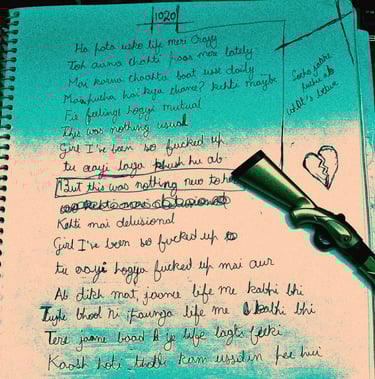 1020
Ha pata usko life meri crazy
Toh aana chahti paas mere lately
Mai karna chaahta baat usse daily
Mai pucha hai kya chance? kehti maybe
Fir feelings hogyi mutual
This was nothing usual
Girl I've been so fucked up
tu aayi laga khush hu ab
But this was nothing new to her
Kehti mai delusional
Girl I've been so fucked up
tu aayi hogya fucked up mai aur
Ab dikh mat jaana life me kabhi bhi
Tujhe bhool ni paunga life me kabhi bhi
Tere jaane baad se ye life lagti feeki
Kaash hoti thodi kam ussdin pee hui